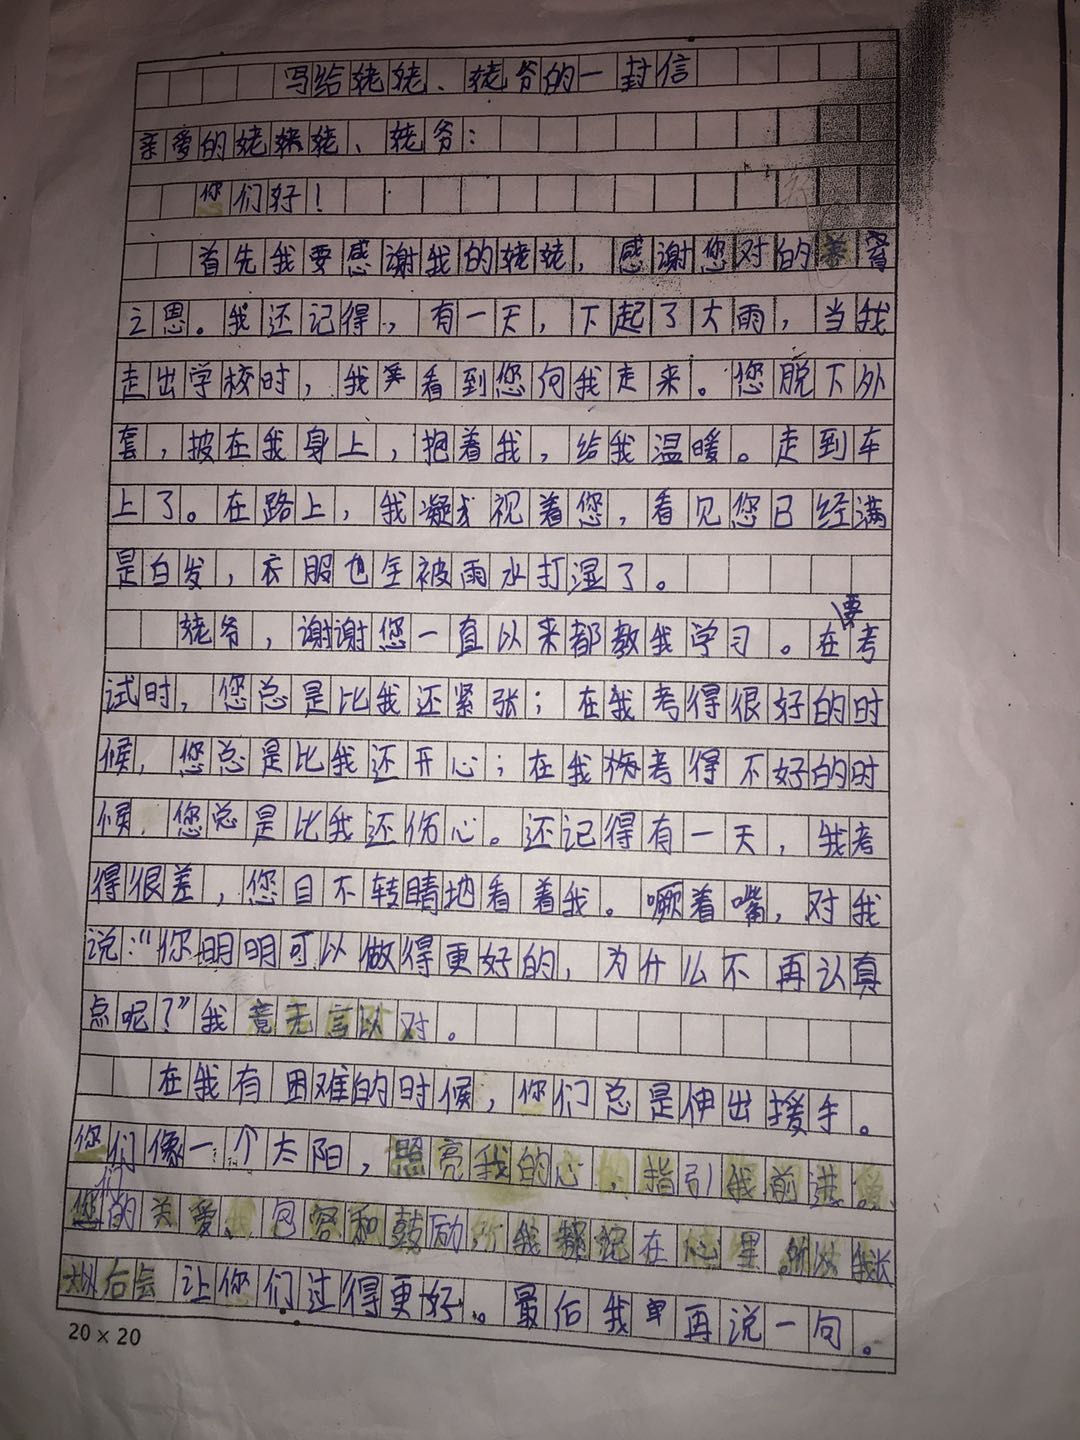 写给姥姥、姥爷的一封信
亲爱的姥姥、姥爷：
你们好！
首先我要感谢我的姥姥，感谢您对的养育
之恩。我还记得，有一天，下起了大雨，当我
走出学校时，我看到您向我走来。您脱下外
套，披在我身上，抱着我，给我温暖。走到车
上了。在路上，我凝视着您，看见您已经满
是白发，衣服也全被雨水打湿了。
姥爷，谢谢您一直以来都教我学习。在要考
试时，您总是比我还紧张；在我考得很好的时
候，您总是比我还开心；在我考得不好的时
候，您总是比我还伤心。还记得有一天，我考
得很差，您目不转睛地看着我。噘着嘴，对我
说：“你明明可以做得更好的，为什么不再认真
点呢？”我竟无言以对。
在我有困难的时候，你们总是伸出援手。
你们像一个太阳，照亮我的心，指引我前进。
您们的关爱、包容和鼓励，我都记在心里。所以我长
大以后会让你们过得更好。最后我再说一句。
20×20